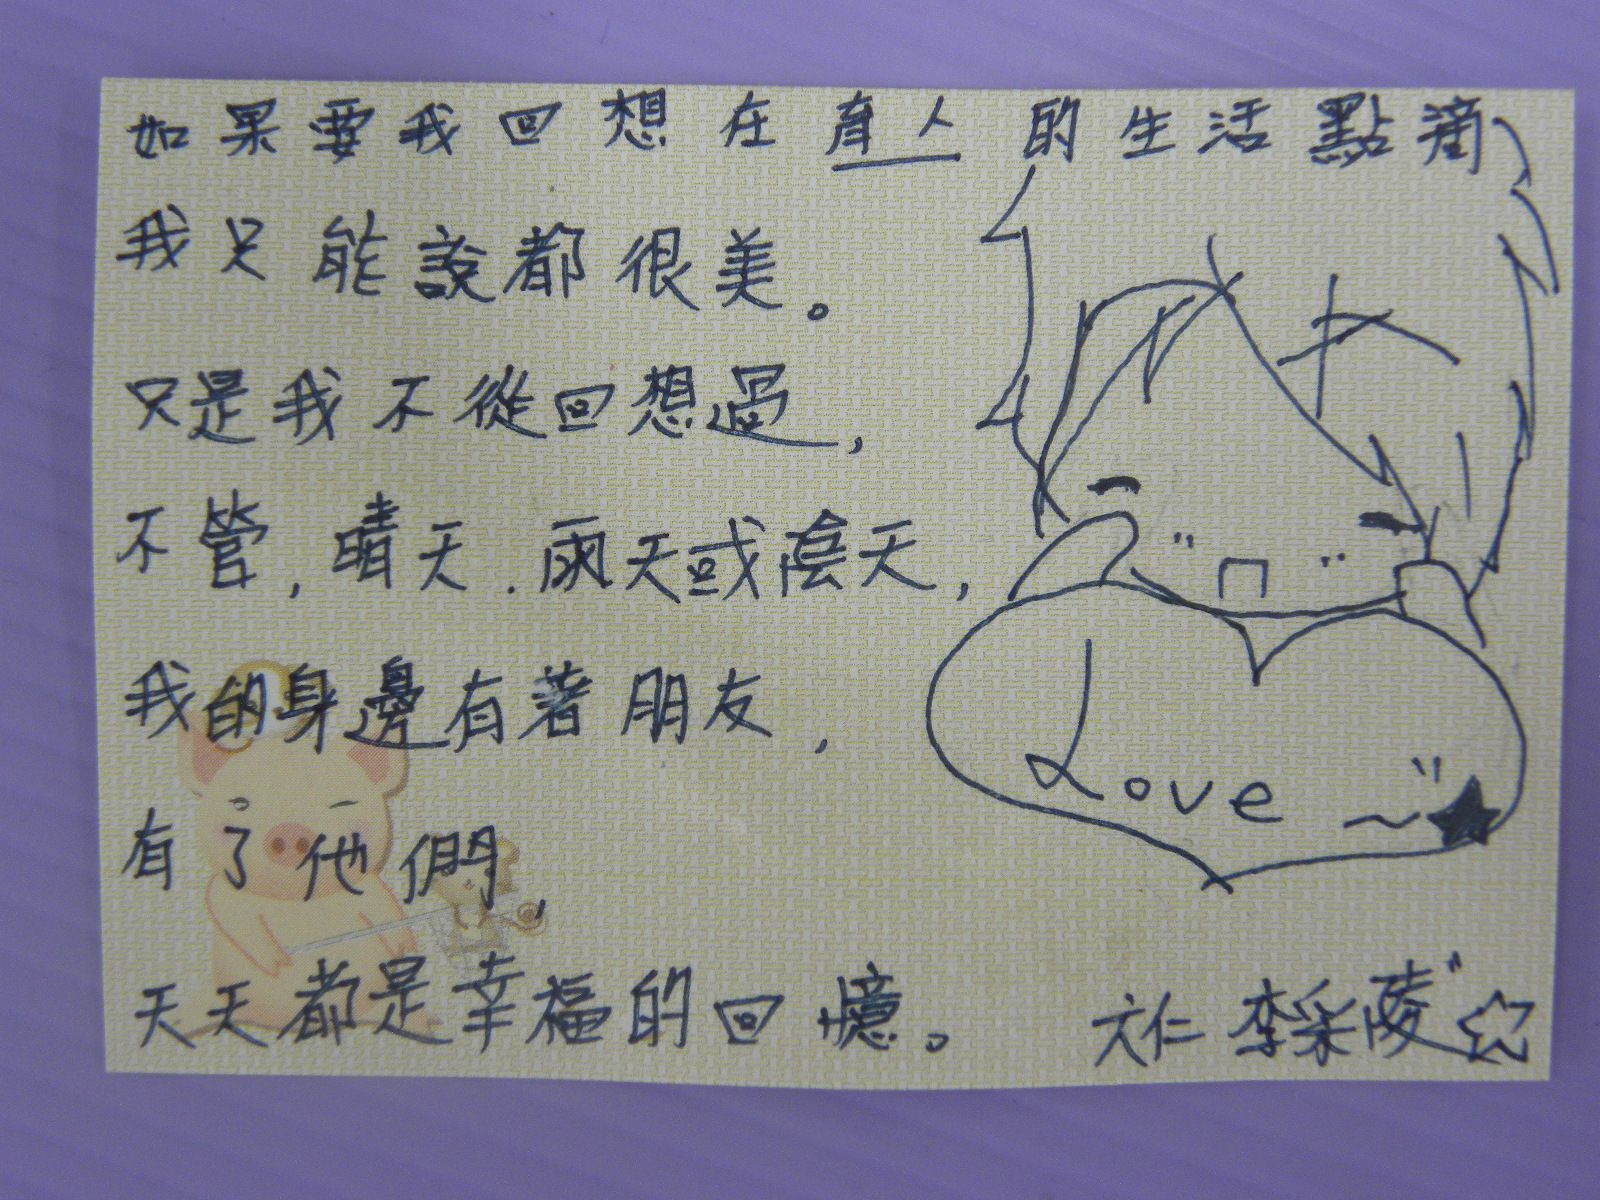 如果要我回想在育人的生活點滴
我只能說都很美。
只是我不從回想過,
不管,晴天.雨天或陰天,
我的身邊有著朋友,
有了他們,
天天都是幸福的回憶。
Love~
六仁 李采陵